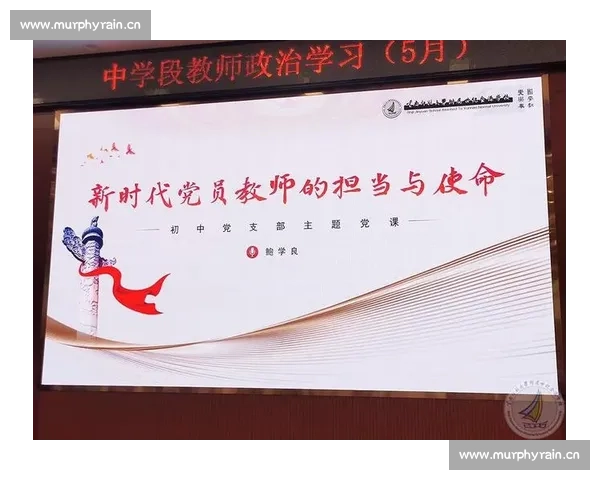 www.murphyrain.cn
中学段教师政治学习（5月）
新时代党员教师的担当与使命
初中党支部主题党课
鲍学良
www.murphyrain.cn